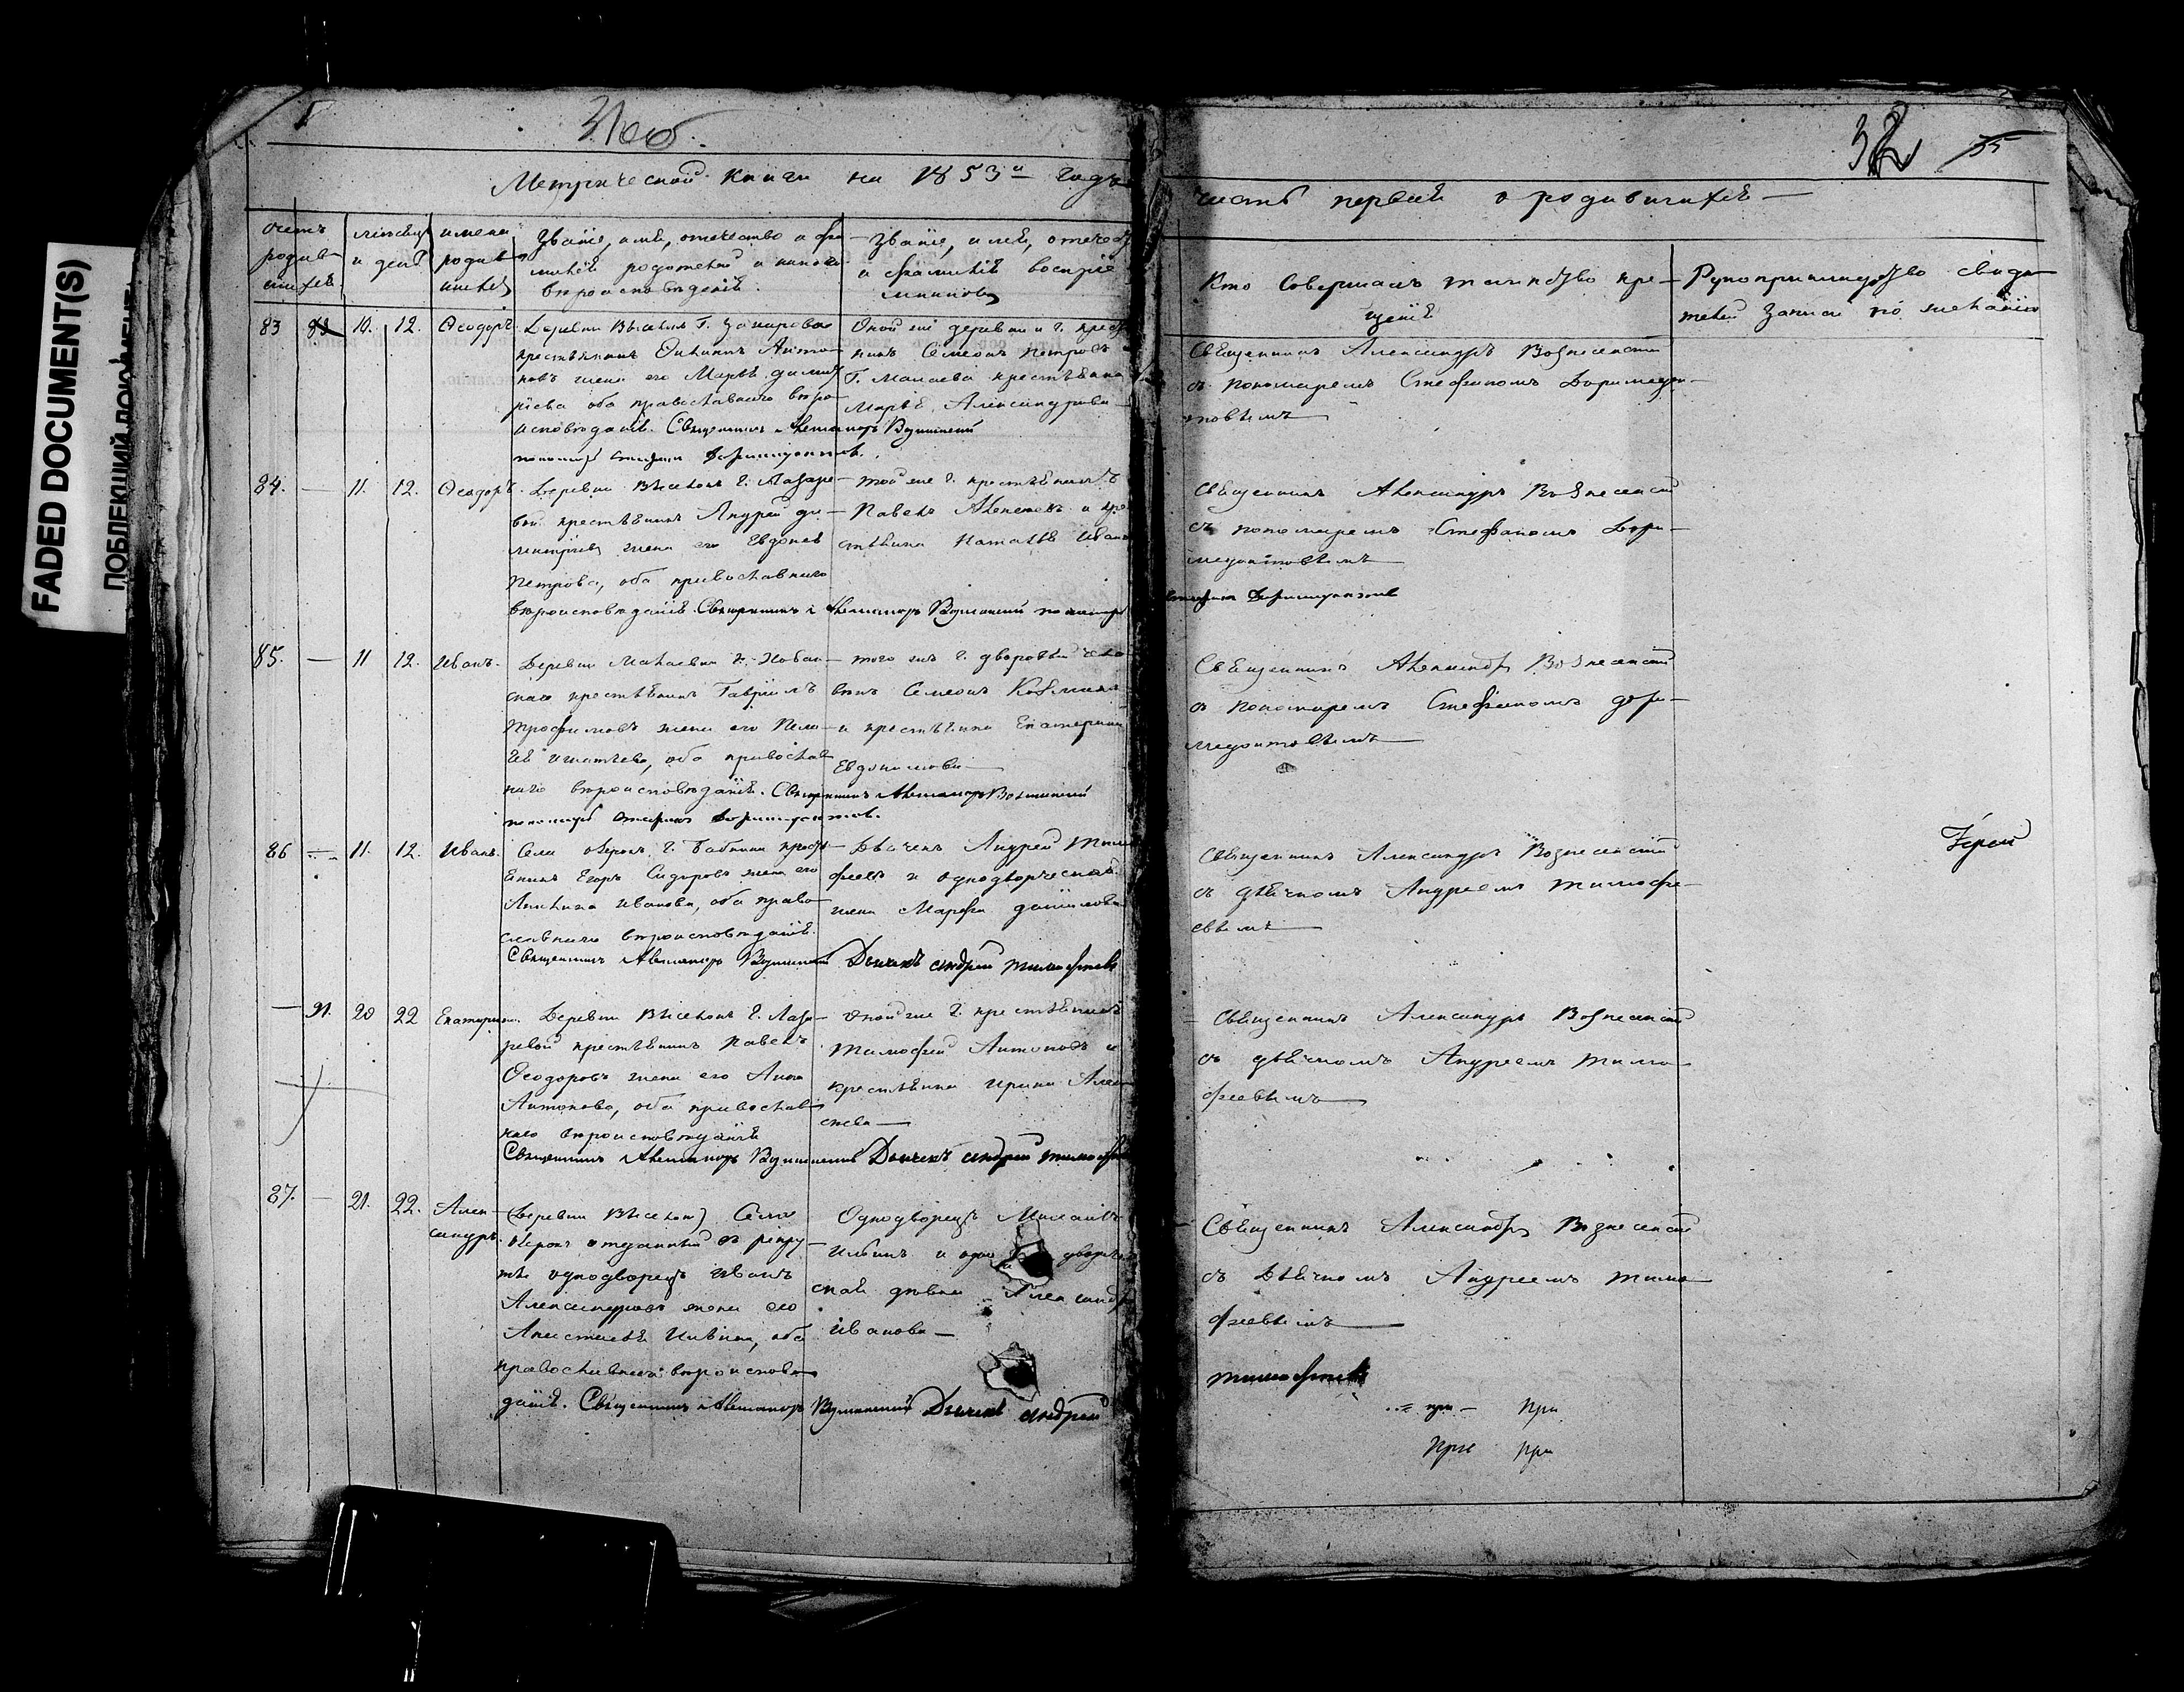 FADED DOCUMENT(S)
31об.
32
55
Метрической книги на 1853й годъ
часть первая о родившихся
счетъ родив шихся
месяцъ и день
имена родив шихся
Званіе, имя, отчество и фа
милія родителей и какого
вероисповеданія.
Званіе, имя, отечест
и фамилія восприе
мниковъ
Кто совершалъ таинство кре-
щенія
Рукоприкладство свиде
телей записи по желанію
83 10. 12. Ѳеодоръ.
крестьянинъ Антоновъ
жена его Марья дмит
ріева оба православнаго веро
исповеданія. Священникъ Александръ Вознесенскій
Оной же деревни Г. крест
нинъ Семенъ Петровъ
крестьянка
Марья Александрова
Священникъ Александръ Вознесенскій
съ пономаремъ Стефаномъ Доримедон-
товымъ
84. — 11. 12. Ѳеодоръ.
Деревни Г. Лазаре
вой крестьянинъ Андрей ди-
митріевъ жена его Евдокія
Петрова, оба православнаго
вероисповеданія. Священникъ Александръ Вознесенскій пономарь
той же Г. крестьянинъ
Павелъ Алексеевъ и кре
стьянка Наталья Иван
Священникъ Александръ Вознесенскій
съ пономаремъ Стефаномъ Дори-
медонтовымъ
Стефанъ Доримедонтовъ
85. — 11 12. Иванъ.
Деревни
крестьянинъ Гавріилъ
Трофимовъ жена его Пела
гея Игнатьева, оба православ
наго вероисповеданія. Священникъ Александръ Вознесенскій
пономарь Стефанъ Доримедонтовъ.
того же Г. дворовый чело
векъ Семенъ Козьминъ
и крестьянка Екатерина
Евдокимова
Священникъ Александръ Вознесенскій
съ пономаремъ Стефаномъ дори-
медонтовымъ
86 — 11. 12. Иванъ.
Села Г. Бабкина крест
янинъ Егоръ Сидоровъ жена его
Акилина Иванова, оба право
славнаго вероисповеданія.
Священникъ Александръ Вознесенскій
Дьячекъ Андрей Тимо
феевъ и однодворческая
жена Марфа данилова
Дьячекъ андрей тимофеевъ
Священникъ Александръ Вознесенскій
съ дьячкомъ Андреемъ Тимофе-
евымъ
— 91. 20 22 Екатерина.
Деревни Г. Лаза-
ревой крестьянинъ Павелъ
Ѳеодоровъ жена его Анна
Антонова, оба православ
наго вероисповеданія
Священникъ Александръ Вознесенскій
Оной же Г. крестьянинъ
Тимофей Антоновъ и
крестьянка Ирина Алек
сеева
Дьячекъ андрей тимофеевъ
Священникъ Александръ Вознесенскій
съ дьячкомъ Андреемъ Тимо-
феевымъ
87. — 21. 22. Алек-
сандръ.
отданный въ рекру
ты однодворецъ Иванъ
Александровъ жена его
Анастасія Ильина, оба
православнаго вероиспове
данія. Священникъ Александръ Вознесенскій Дьячекъ андрей
Однодворецъ Михаилъ
Ильинъ и одно дворче
ская девка Александр
Иванова
Священникъ Александръ Вознесенскій
съ Дьячкомъ Андреемъ Тимо
феевымъ
тимофеевъ
при — при
при при
Іерей